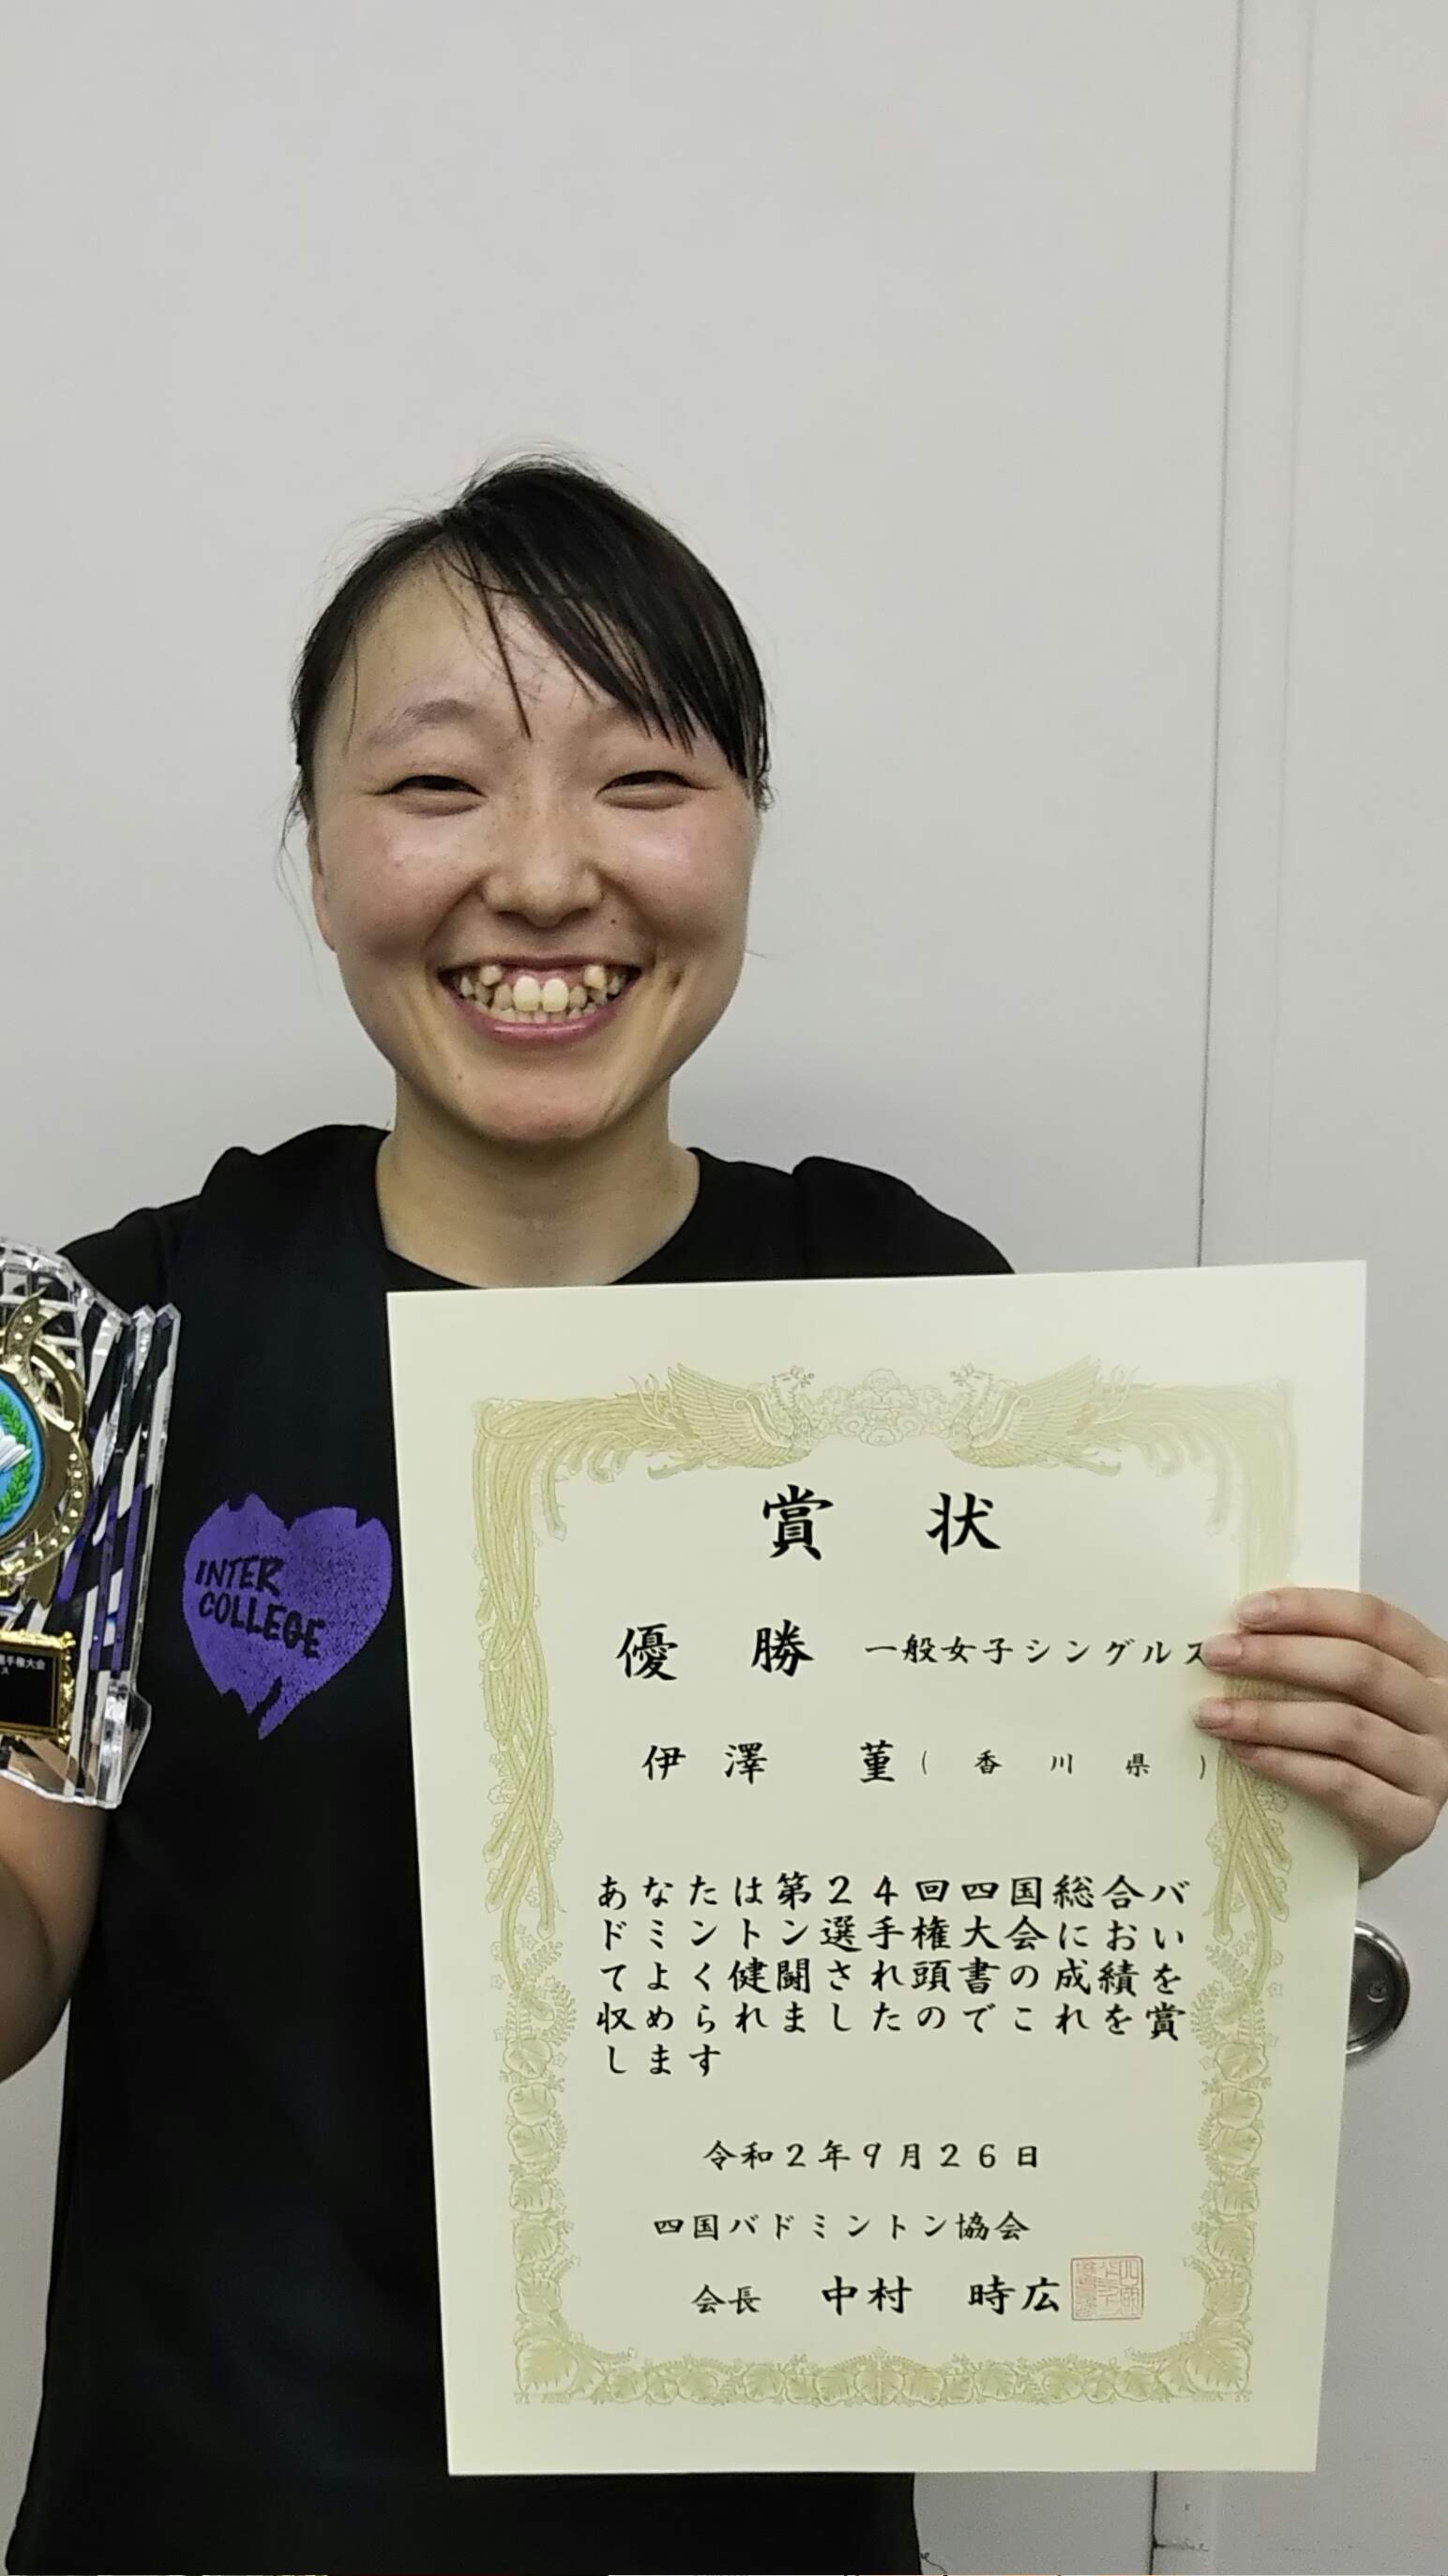 選手権大会
ス
INTER
COLLEGE
賞 状
優 勝 一般女子シングルス
伊 澤 菫 ( 香 川 県 )
あなたは第24回四国総合バ
ドミントン選手権大会におい
てよく健闘され頭書の成績を
収められましたのでこれを賞
します
令和2年9月26日
四国バドミントン協会
会長 中村 時広